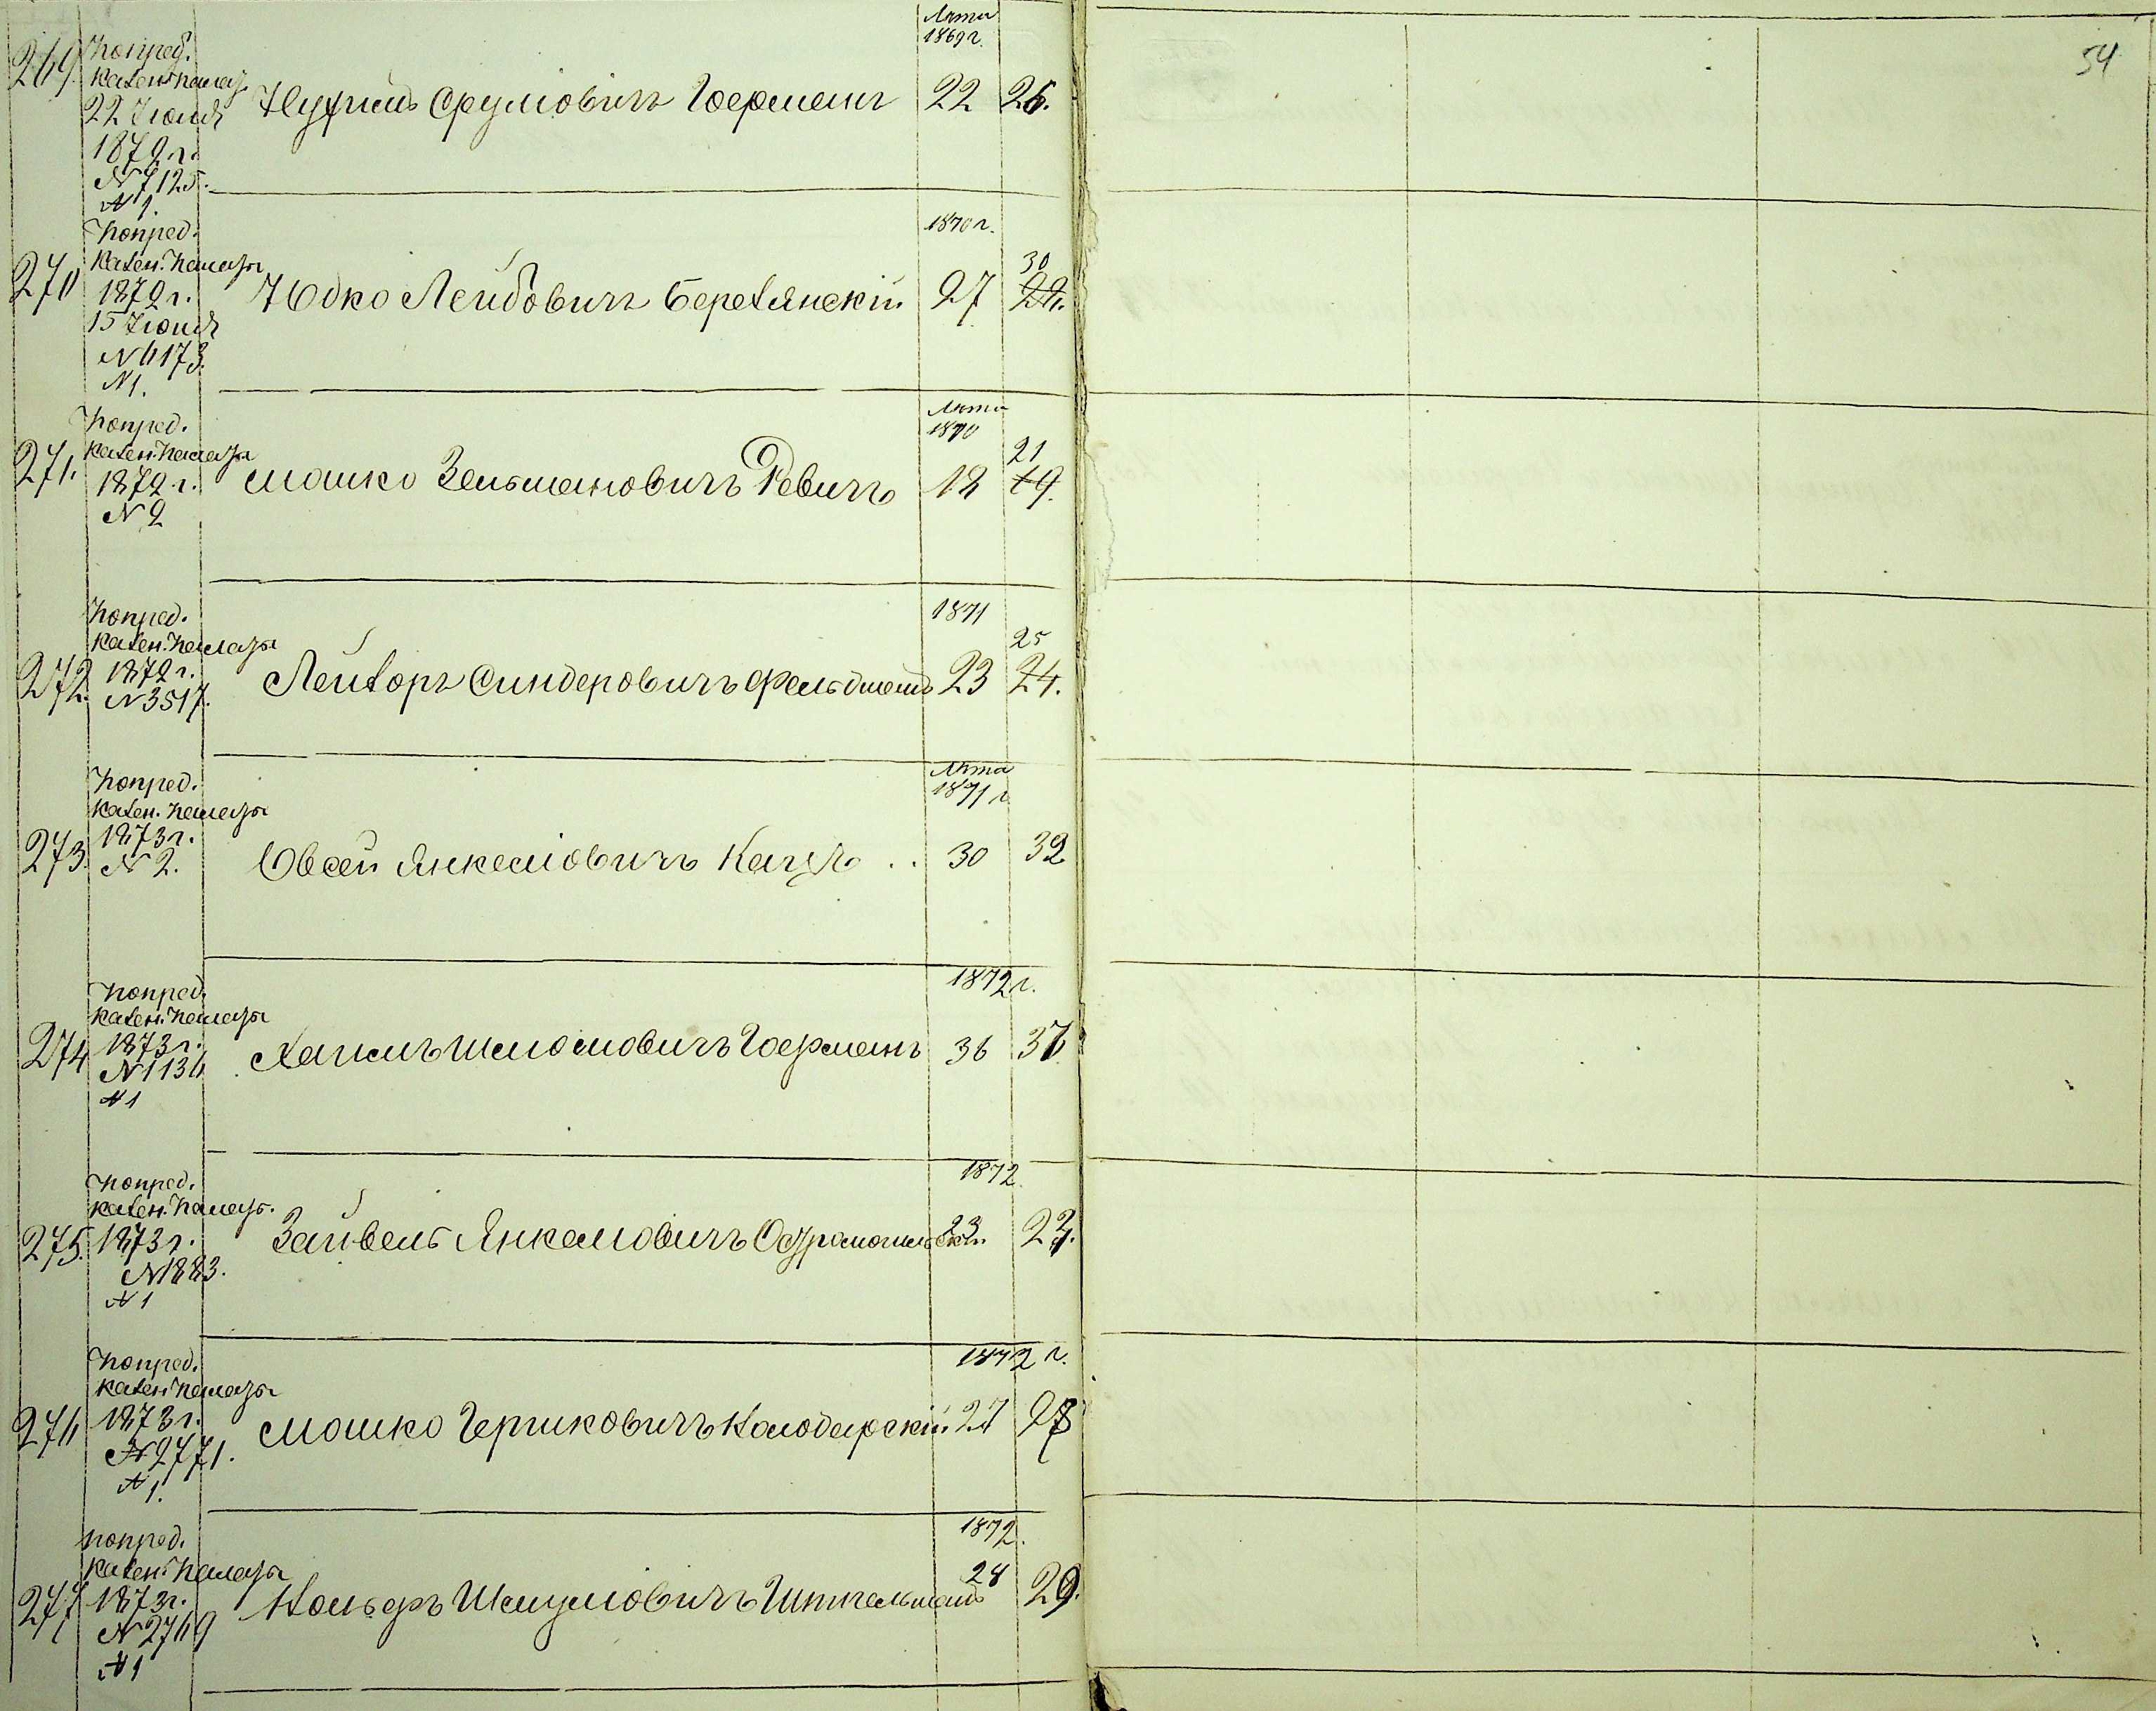 54
Лѣта
1869 г.
269. По пред.
Казен. Палаты
22 Іюня
1872 г.
№ 7125.
№ 1.
Сруловичъ Германъ 22 26.
1870 г.
270 По пред.
Казен. Палаты
1872 г.
15 Іюня
№ 6173.
№ 1.
Юдко Лейбовичъ Березянскій 27 30
Лѣта
1870
271. По пред.
Казен. Палаты
1872 г.
№ 2
Мошко Зельмановичъ Ревичъ 18 21
19.
1871
272. По пред.
Казен. Палаты
1872 г.
№ 3517.
Лейзоръ Синдеровичъ Фельдманъ 23 25
24.
Лѣта
1871 г.
273. По пред.
Казен. Палаты
1873 г.
№ 2.
Овсей Янкеловичъ Кацъ .. 30 32
1872 г.
274 По пред.
Казен. Палаты
1873 г.
№ 1136
№ 1
Хаимъ Шлёмовичъ Германъ 36 37
1872
275. По пред.
Казен. Палаты.
1873 г.
№ 1883.
№ 1
Зайвель Янкеловичъ 23
1872 г.
276 По пред.
Казен. Палаты
1873 г.
№ 2771.
№ 1.
Мошко Гершковичъ Колодарскій 27 28
1872.
277 По пред.
Казен. Палаты
1873 г.
№ 2769
№ 1
Шмуловичъ 28 29.